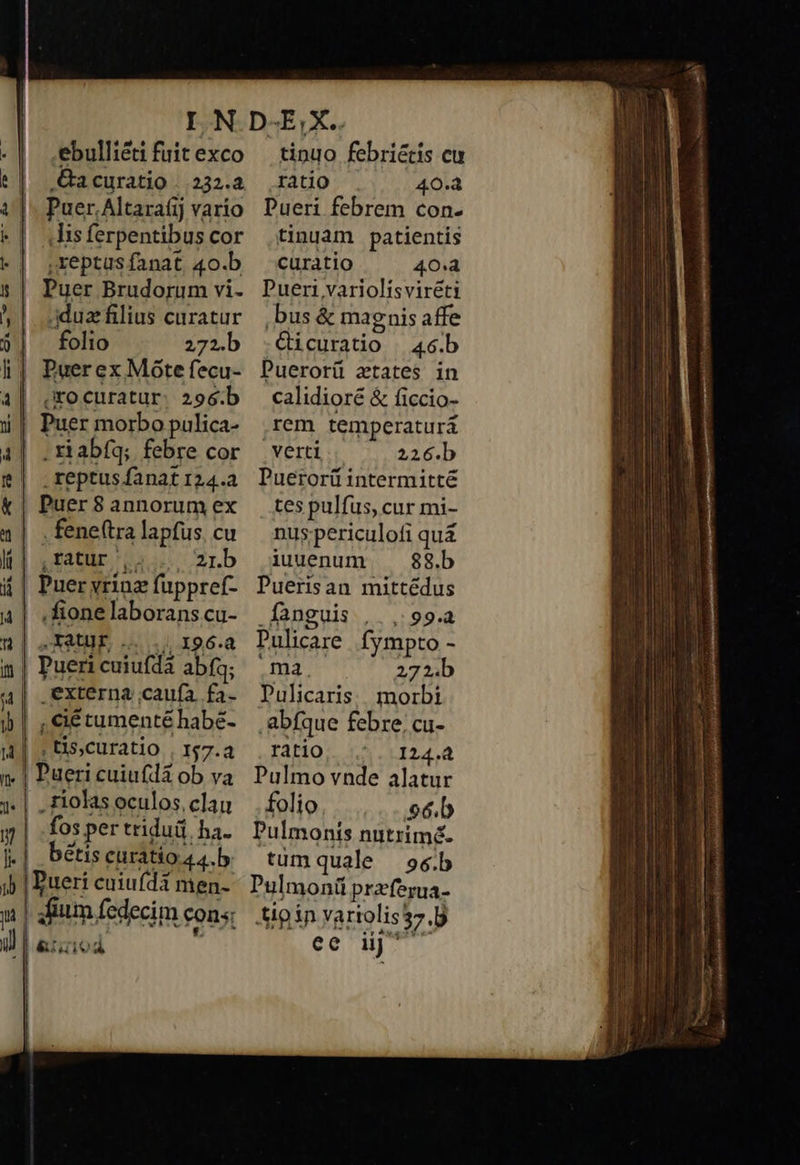 I N D E X.
ebulliéti fuit exco
cta curatio 232.a
Puer Altarasij vario
lis serpentibus cor
reptus sanat 40.b
Puer Brudorum vi-
duæ filius curatur
folio 272.b
Puer ex Mōte secu-
ro curatur 296.b
Puer morbo pulica-
ri absq; febre cor
reptus sanat 124.a
Puer 8 annorum ex
fenestra lapsus cu
ratur 21.b
Puer vrinæ suppres-
sione laborans cu-
ratur 196.a
Pueri cuiusdā absq;
externa causa fa-
ciē tumentē habē-
tis, curatio 157.a
Pueri cuiusdā ob va
riolas oculos clau
sos per triduū ha-
bētis curatio 44.b
Pueri cuiusdā men-
sium sedecim cons:
tinuo febriētis cu
ratio 40.a
Pueri febrem con-
tinuam patientis
curatio 40.a
Pueri variolis virēti
bus & magnis affe
cti curatio 46.b
Puerorū ætates in
calidiorē & siccio-
rem temperaturā
verti 226.b
Puerorū intermittē
tes pulsus, cur mi-
nus periculosi quā
iuuenum 88.b
Pueris an mittēdus
sanguis 99.a
Pulicare sympto-
ma 272.b
Pulicaris morbi
absque febre cu-
ratio 124.a
Pulmo vnde alatur
folio 96.b
Pulmonis nutrimē-
tum quale 96.b
Pulmonū præserua-
tio in variolis 37.b
ee iij